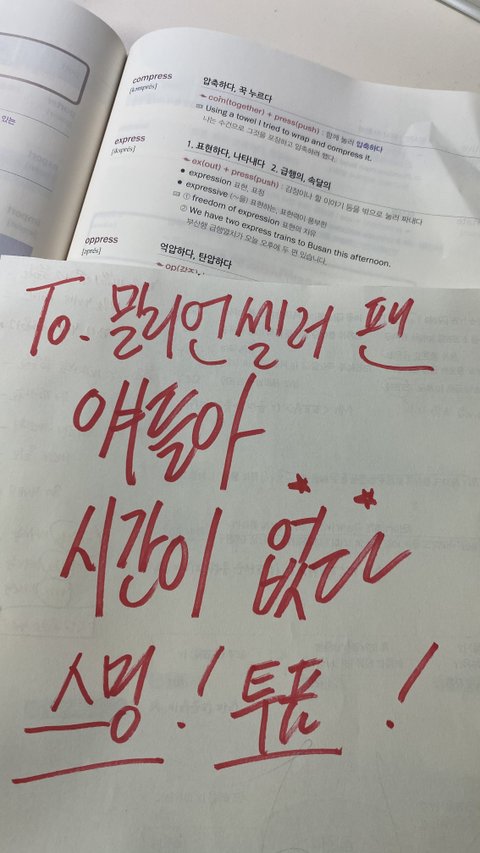 compress
압축하다, 꾹 누르다
com(together) + press(push) : 함께 눌러 압축하다
Using a towel I tried to wrap and compress it.
나는 수건으로 그것을 포장하고 압축하려 했다.
express
1. 표현하다, 나타내다 2. 급행의, 속달의
ex(out) + press(push) : 감정이나 할 이야기 등을 밖으로 눌러 짜내다
● expression 표현, 표정
● expressive (~을) 표현하는, 표현력이 풍부한
① freedom of expression 표현의 자유
② We have two express trains to Busan this afternoon.
부산행 급행열차가 오늘 오후에 두 편 있습니다.
oppress
억압하다, 탄압하다
있는
To. 밀리언셀러 팬
얘들아
시간이 없다
스밍! 투표!